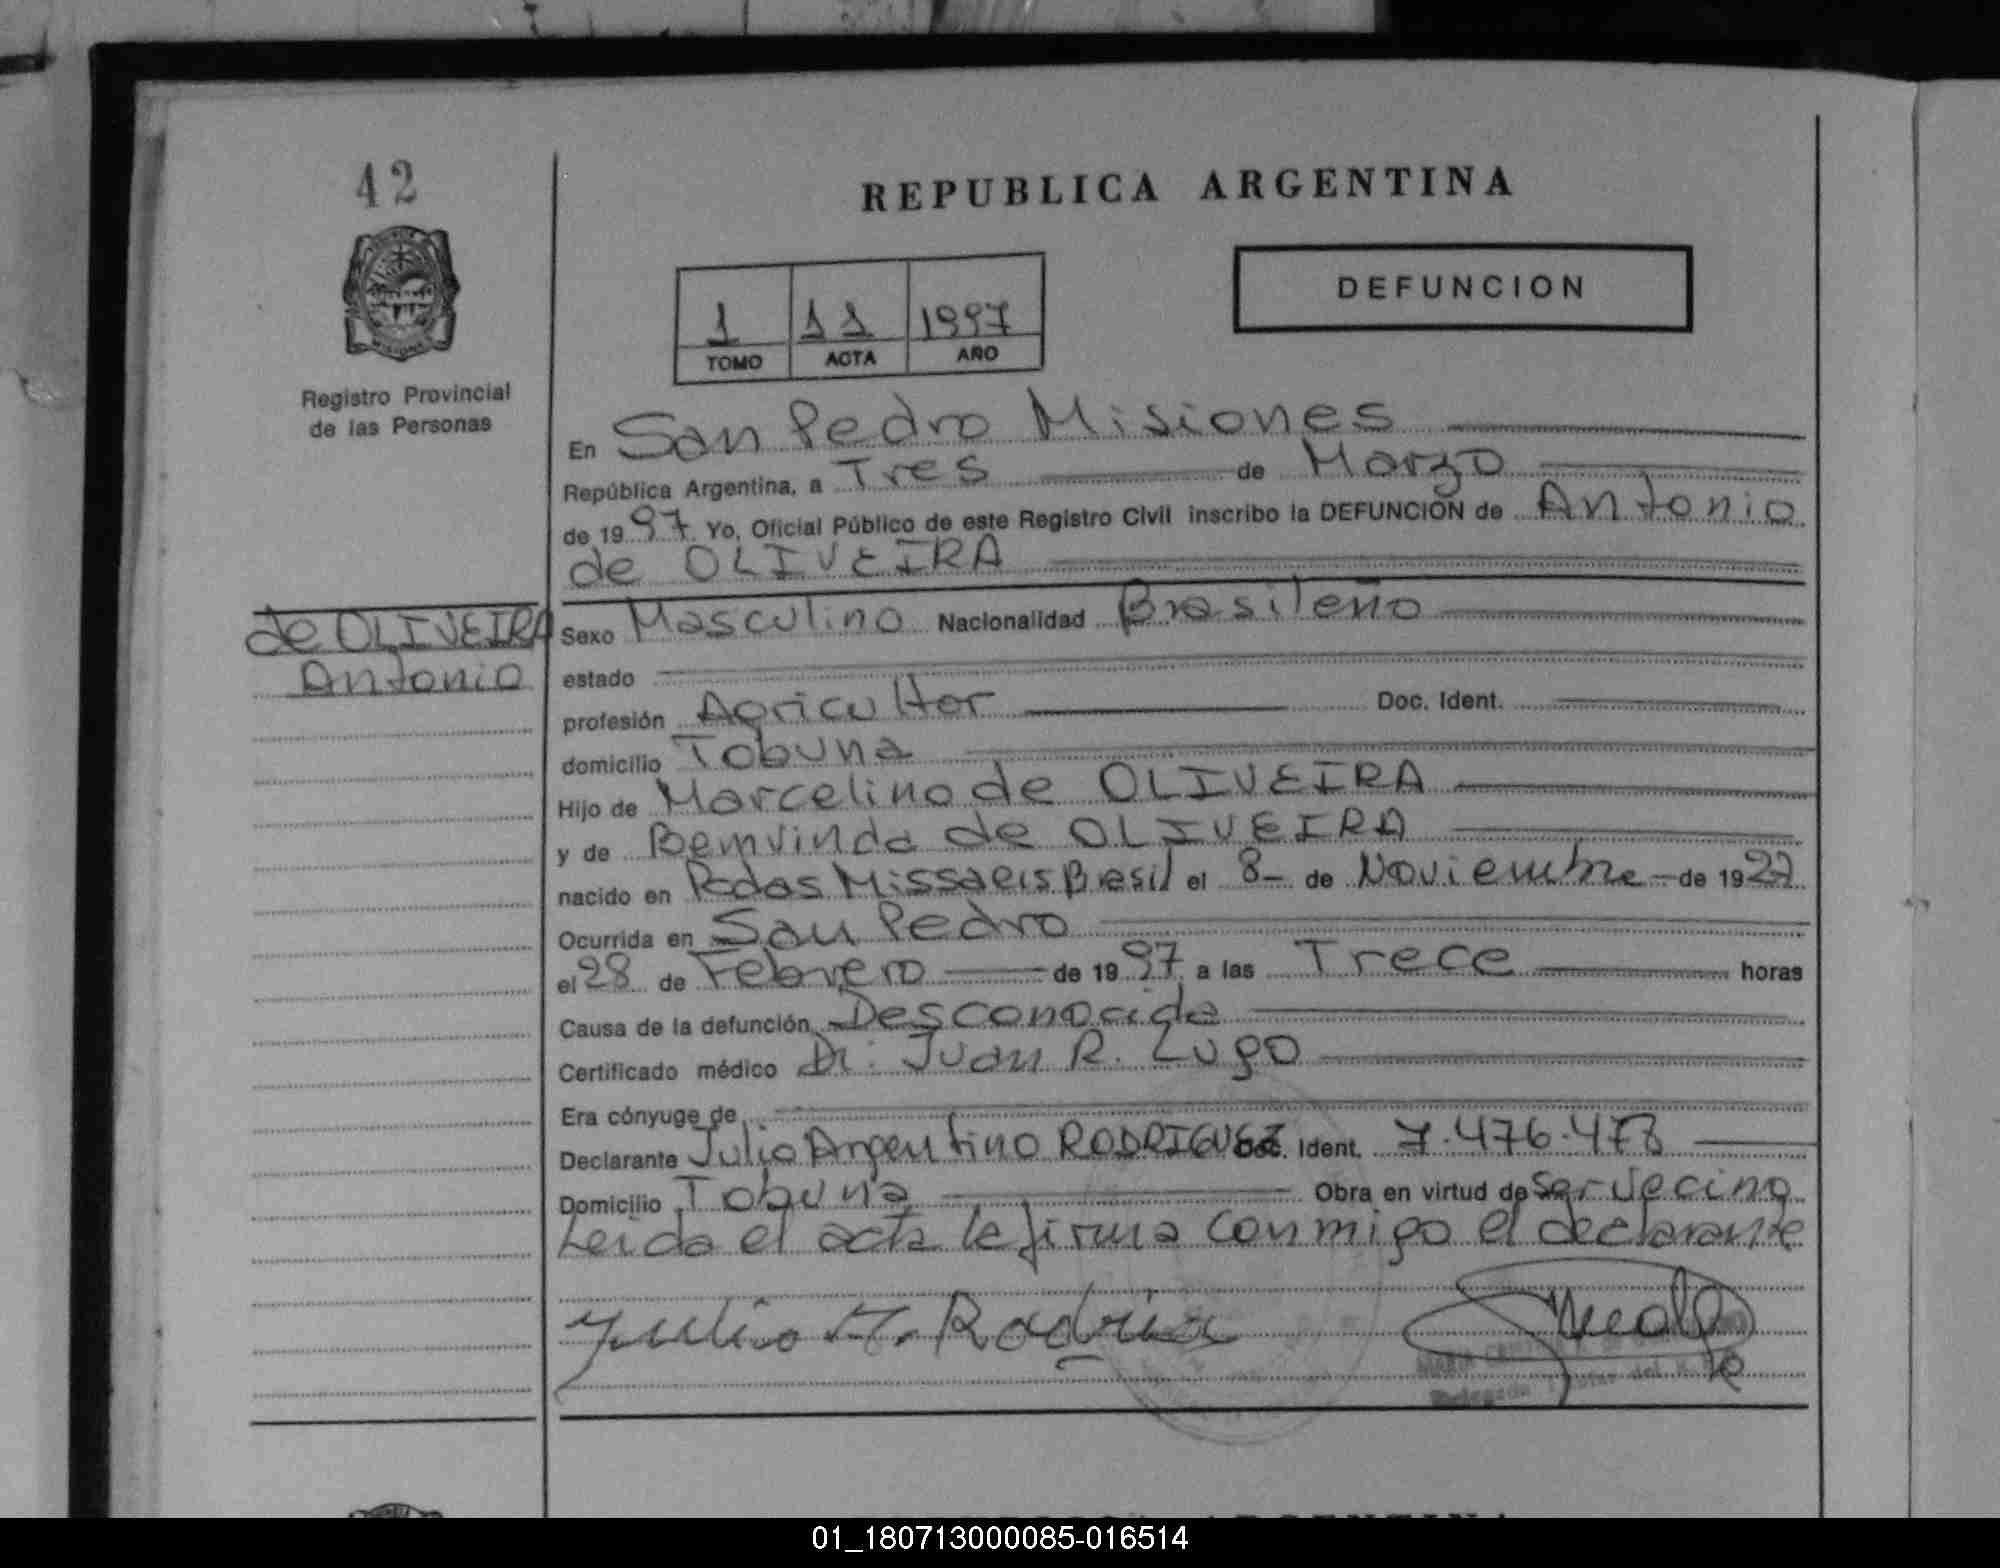 42
REPUBLICA ARGENTINA
DEFUNCION
1 11 1997
TOMO ACTA AÑO
Registro Provincial
de las Personas
En San Pedro Misiones
República Argentina, a Tres de Marzo
de 1997 Yo, Oficial Público de este Registro Civil inscribo la DEFUNCION de Antonio
de OLIVEIRA
de OLIVEIRA
Antonio
Sexo Masculino Nacionalidad Brasileño
estado
profesión Agricultor Doc. Ident.
domicilio Tobuna
Hijo de Marcelino de OLIVEIRA
y de Bemvinda de OLIVEIRA
nacido en Brasil el 8 de Noviembre de 1927
Ocurrida en San Pedro
el 28 de Febrero de 1997 a las Trece horas
Causa de la defunción Desconocida
Certificado médico Dr. Juan R. Lugo
Era cónyuge de
Declarante Julio Argentino RODRIGUEZ Doc. Ident. 7.476.478
Domicilio Tobuna Obra en virtud de ser vecino
Leida el acta la firma conmigo el declarante
Julio A.
01_180713000085-016514